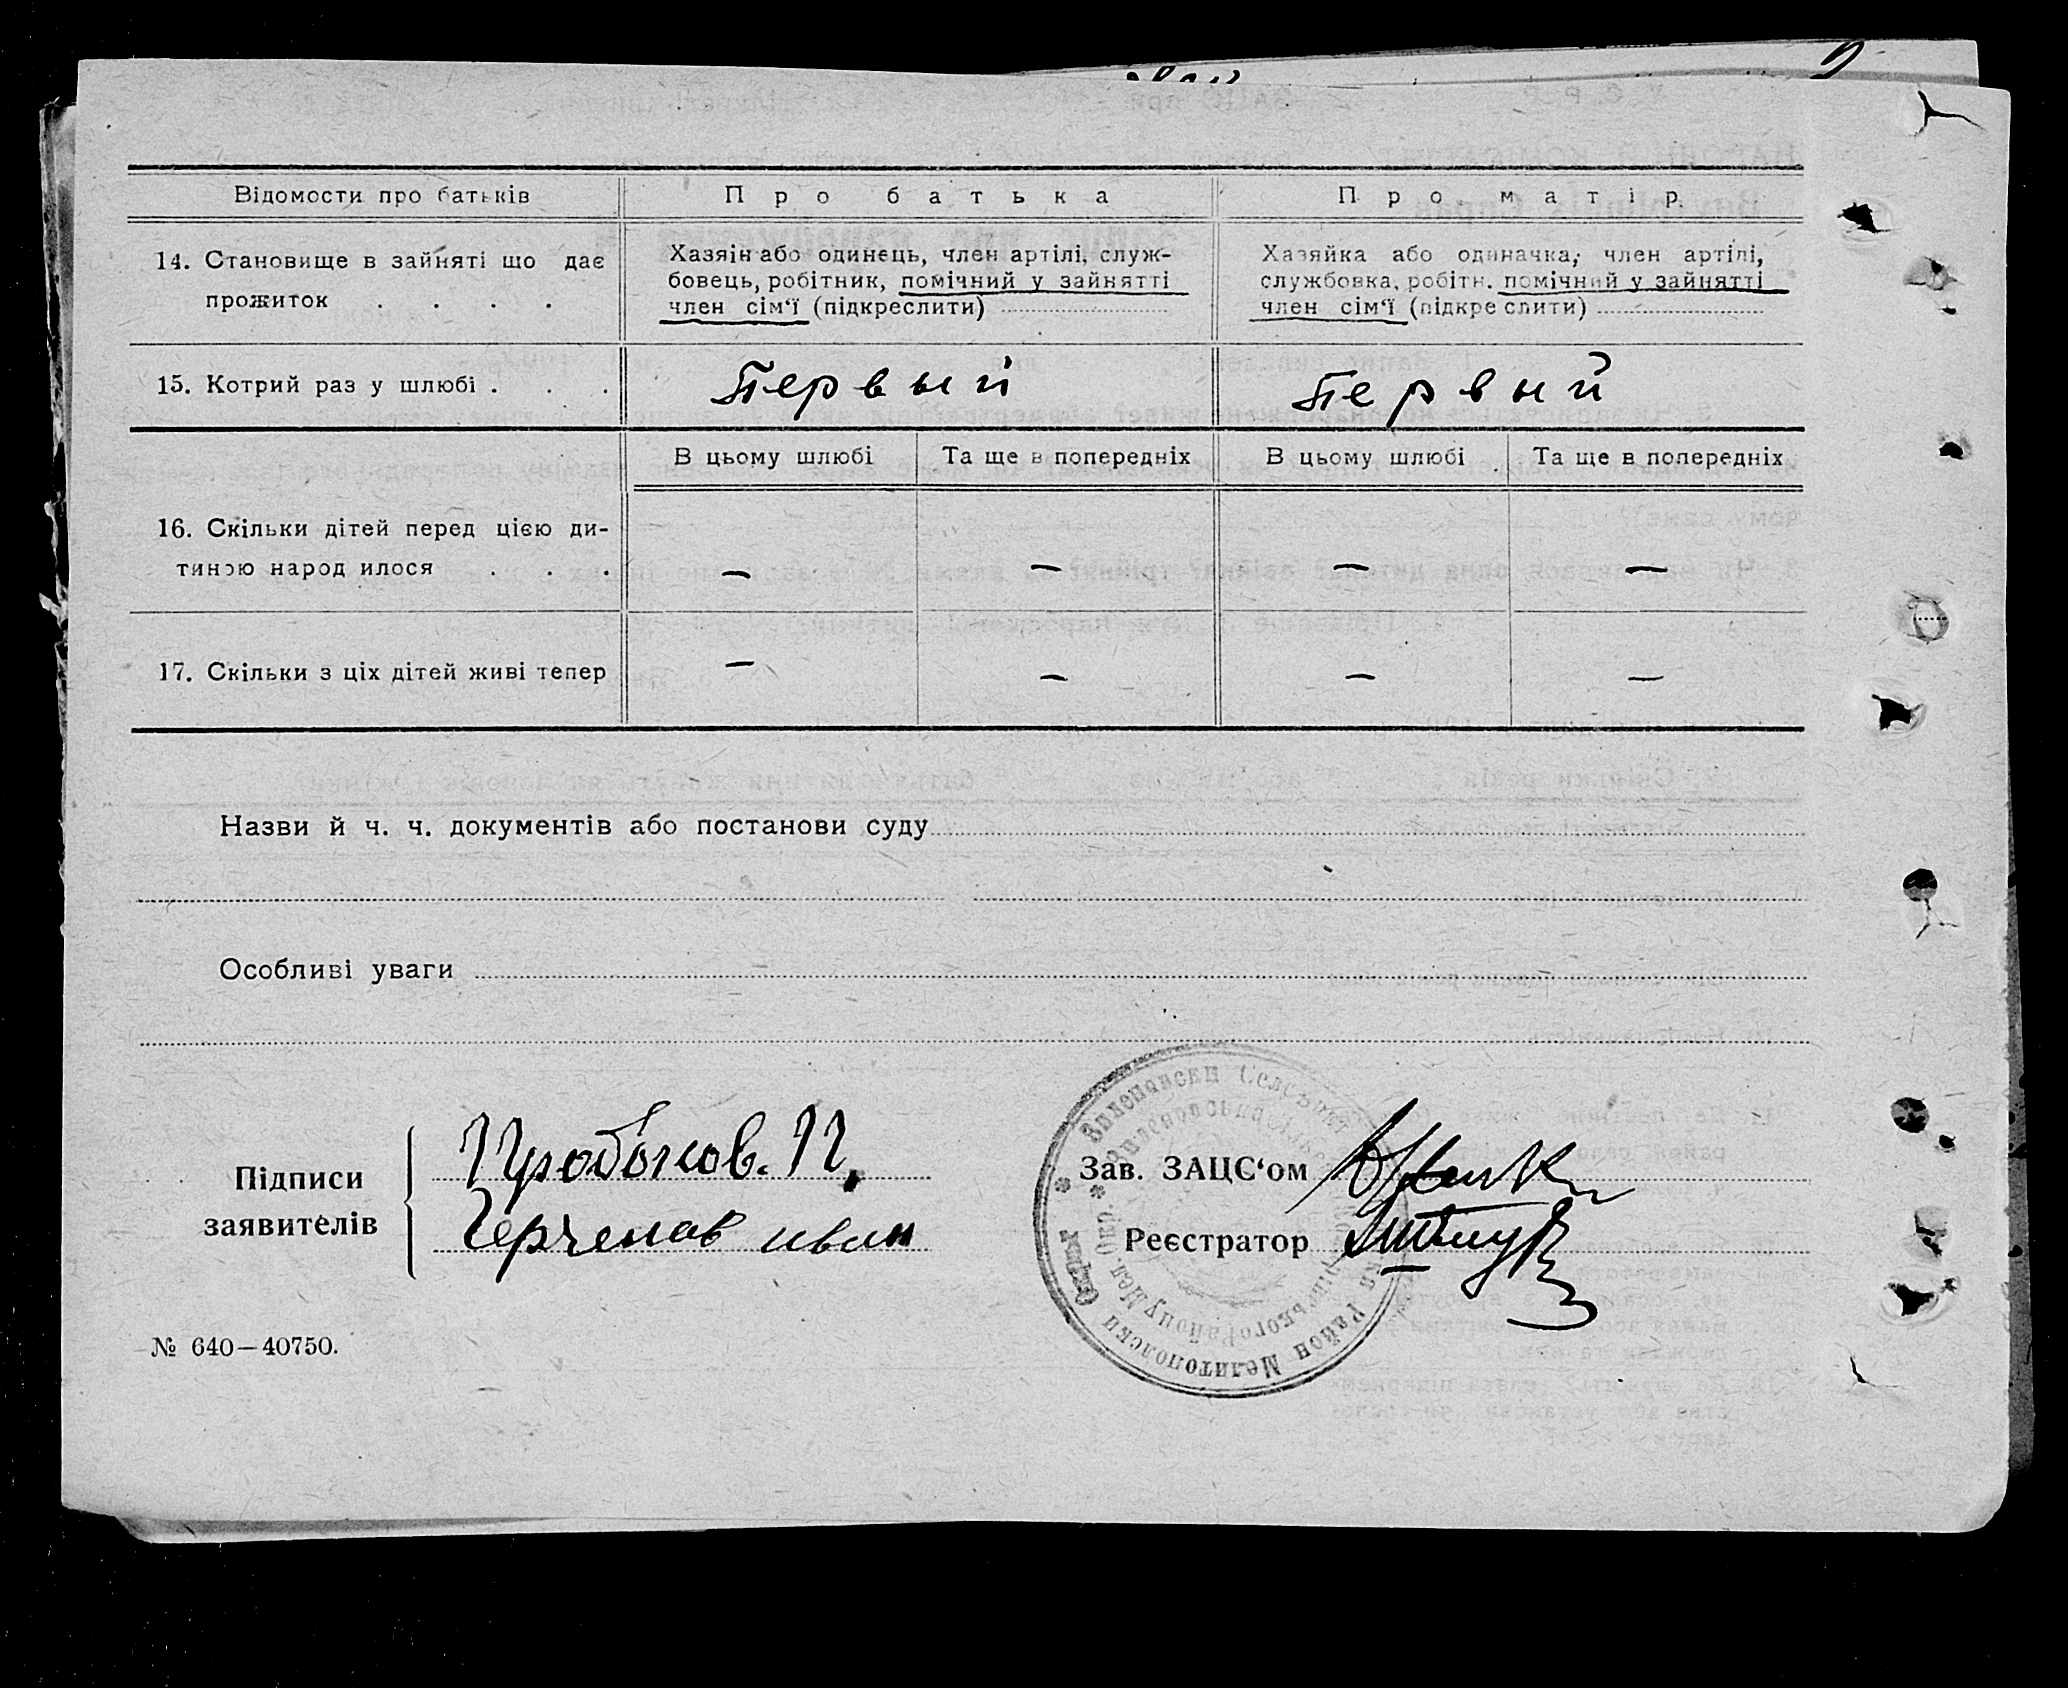 Відомости про батьків
Про батька
Про матір
14. Становище в зайняті що дає
прожиток . . . .
Хазяін або одинець, член артілі, служ-
бовець, робітник, помічний у зайнятті
член сім'ї (підкреслити)
Хазяйка або одиначка, член артілі,
службовка, робітн. помічний у зайнятті
член сім'ї (підкреслити)
15. Котрий раз у шлюбі . . .
Первый
Первый
В цьому шлюбі
Та ще в попередніх
В цьому шлюбі
Та ще в попередніх
16. Скільки дітей перед цією ди-
тиною народилося . . .
— — — —
17. Скільки з ціх дітей живі тепер
— — — —
Назви й ч. ч. документів або постанови суду
Особливі уваги
Підписи
заявителів
иван
Зав. ЗАЦС'ом
Реєстратор
Район Мелитопольски
№ 640—40750.